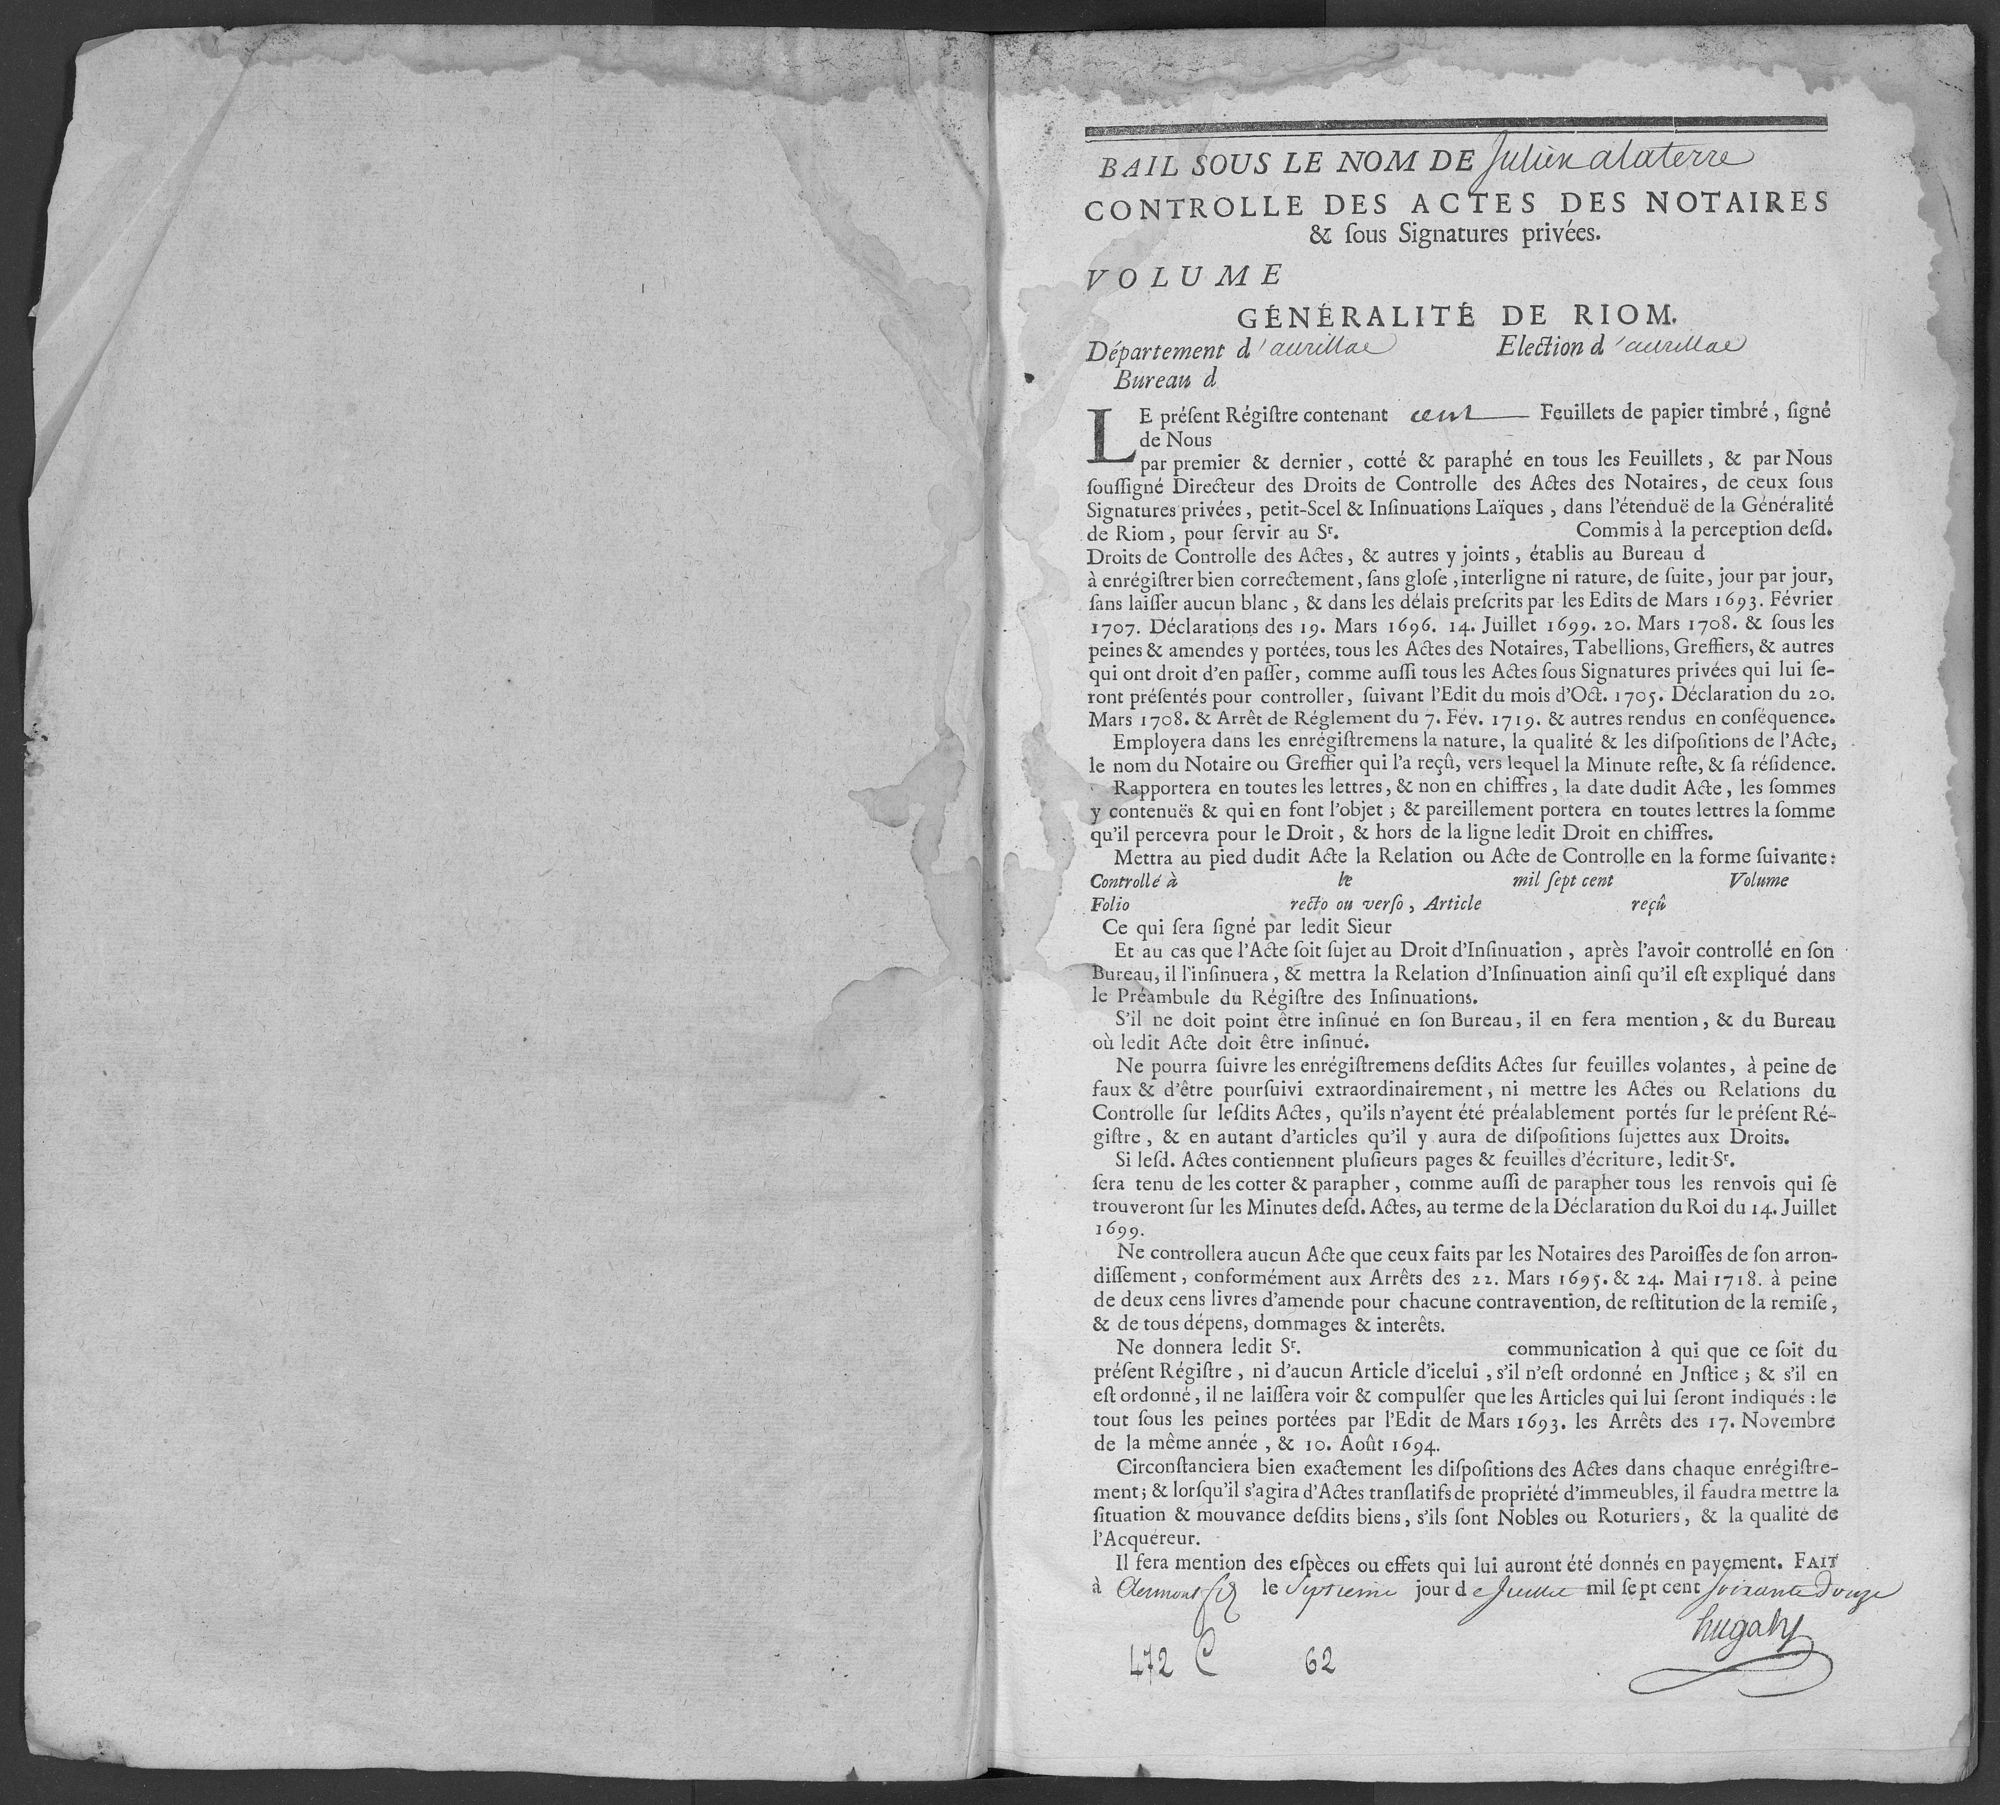 BAIL SOUS LE NOM DE Julien alaterre
CONTROLLE DES ACTES DES NOTAIRES
& ſous Signatures privées.
VOLUME
GÉNÉRALITÉ DE RIOM.
Département d'aurillac Election d'aurillac
Bureau d
LE préſent Régiſtre contenant cent Feuillets de papier timbré, ſigné
de Nous
par premier & dernier, cotté & paraphé en tous les Feuillets, & par Nous
ſouſſigné Directeur des Droits de Controlle des Actes des Notaires, de ceux ſous
Signatures privées, petit-Scel & Inſinuations Laïques, dans l'étenduë de la Généralité
de Riom, pour ſervir au Sr. Commis à la perception deſd.
Droits de Controlle des Actes, & autres y joints, établis au Bureau d
à enrégiſtrer bien correctement, ſans gloſe, interligne ni rature, de ſuite, jour par jour,
ſans laiſſer aucun blanc, & dans les délais preſcrits par les Edits de Mars 1693. Février
1707. Déclarations des 19. Mars 1696. 14. Juillet 1699. 20. Mars 1708. & ſous les
peines & amendes y portées, tous les Actes des Notaires, Tabellions, Greffiers, & autres
qui ont droit d'en paſſer, comme auſſi tous les Actes ſous Signatures privées qui lui ſe-
ront préſentés pour controller, ſuivant l'Edit du mois d'Oct. 1705. Déclaration du 20.
Mars 1708. & Arrêt de Réglement du 7. Fév. 1719. & autres rendus en conſéquence.
Employera dans les enrégiſtremens la nature, la qualité & les diſpoſitions de l'Acte,
le nom du Notaire ou Greffier qui l'a reçû, vers lequel la Minute reſte, & ſa réſidence.
Rapportera en toutes les lettres, & non en chiffres, la date dudit Acte, les ſommes
y contenuës & qui en font l'objet; & pareillement portera en toutes lettres la ſomme
qu'il percevra pour le Droit, & hors de la ligne ledit Droit en chiffres.
Mettra au pied dudit Acte la Relation ou Acte de Controlle en la forme ſuivante:
Controllé à le mil ſept cent Volume
Folio recto ou verſo, Article reçû
Ce qui ſera ſigné par ledit Sieur
Et au cas que l'Acte ſoit ſujet au Droit d'Inſinuation, après l'avoir controllé en ſon
Bureau, il l'inſinuera, & mettra la Relation d'Inſinuation ainſi qu'il eſt expliqué dans
le Préambule du Régiſtre des Inſinuations.
S'il ne doit point être inſinué en ſon Bureau, il en fera mention, & du Bureau
où ledit Acte doit être inſinué.
Ne pourra ſuivre les enrégiſtremens deſdits Actes ſur feuilles volantes, à peine de
faux & d'être pourſuivi extraordinairement, ni mettre les Actes ou Relations du
Controlle ſur leſdits Actes, qu'ils n'ayent été préalablement portés ſur le préſent Ré-
giſtre, & en autant d'articles qu'il y aura de diſpoſitions ſujettes aux Droits.
Si leſd. Actes contiennent pluſieurs pages & feuilles d'écriture, ledit Sr.
ſera tenu de les cotter & parapher, comme auſſi de parapher tous les renvois qui ſe
trouveront ſur les Minutes deſd. Actes, au terme de la Déclaration du Roi du 14. Juillet
1699.
Ne controllera aucun Acte que ceux faits par les Notaires des Paroiſſes de ſon arron-
diſſement, conformément aux Arrêts des 22. Mars 1695. & 24. Mai 1718. à peine
de deux cens livres d'amende pour chacune contravention, de reſtitution de la remiſe,
& de tous dépens, dommages & interêts.
Ne donnera ledit Sr. communication à qui que ce ſoit du
préſent Régiſtre, ni d'aucun Article d'icelui, s'il n'eſt ordonné en Juſtice; & s'il en
eſt ordonné, il ne laiſſera voir & compulſer que les Articles qui lui ſeront indiqués: le
tout ſous les peines portées par l'Edit de Mars 1693. les Arrêts des 17. Novembre
de la même année, & 10. Août 1694.
Circonſtanciera bien exactement les diſpoſitions des Actes dans chaque enrégiſtre-
ment; & lorſqu'il s'agira d'Actes tranſlatifs de propriété d'immeubles, il faudra mettre la
ſituation & mouvance deſdits biens, s'ils ſont Nobles ou Roturiers, & la qualité de
l'Acquéreur.
Il fera mention des eſpèces ou effets qui lui auront été donnés en payement. FAIT
à Clermont fd le Septieme jour de Juillet mil ſept cent Soixante Douze
hugaly
472 C 62